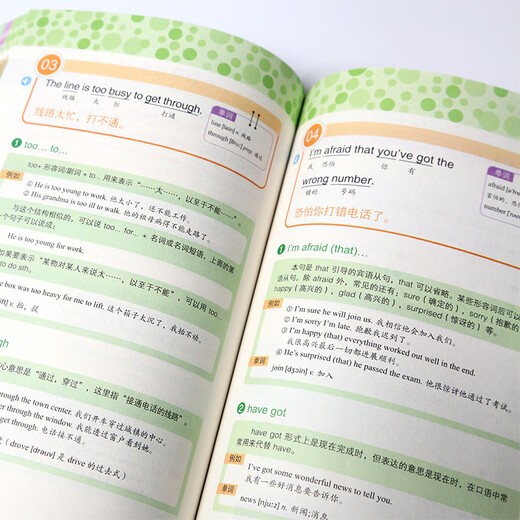 03
The line is too busy to get through.
线路 太 忙 打通
线路太忙，打不通。
单词
line [laɪn] n. 线路
through [θruː] prep. 通过
1 too... to...
too+ 形容词/副词 + to... 用来表示“……太……，以至于不能……”
例如
① He is too young to work. 他太小了，还不能工作。
② His grandma is too ill to walk. 他的祖母病得不能走路了。
与这个结构相似的，可以说 too... for... + 名词或名词短语，上面的第
一个句子可以说成：
He is too young for work.
如果要表示“某物对某人来说太……，以至于不能”，可以用 too...
to do sth.
box was too heavy for me to lift. 这个箱子太沉了，我抬不动。
v. 抬，提
gh
心意思是“通过，穿过”，这里指“接通电话的线路”。
through the town center. 我们开车穿过城镇的中心。
through the window. 我能透过窗户看到她。
get through. 电话接不通。
(drove [drəʊv] 是 drive 的过去式)
04
I'm afraid that you've got the
我 恐怕 你 有
wrong number.
错的 号码
恐怕你打错电话了。
单词
害怕的，恐怕
1 I'm afraid (that)...
本句是 that 引导的宾语从句，that 可以省略。某些形容词后可以
语从句。除 afraid 外，常见的还有：sure（确定的），sorry（抱歉的
happy（高兴的），glad（高兴的），surprised（惊讶的）等。
例如
① I'm sure he will join us. 我相信他会加入我们。
② I'm sorry I'm late. 抱歉我迟到了。
③ I'm happy (that) everything worked out well in the end.
我很高兴最后一切都进展顺利。
④ He's surprised (that) he passed the exam. 他很惊讶他通过了考试。
单词
join [dʒɔɪn] v. 加入
2 have got
have got 形式上是现在完成时，但表达的意思是现在时，在口语中常
常用来代替 have。
例如
I've got some wonderful news to tell you.
我有一些好消息要告诉你。
单词
news [njuːz] n. 新闻;消息